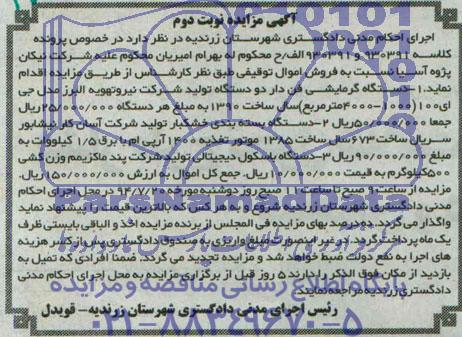 آگهی مزایده نوبت دوم
اجرای احکام مدنی دادگستری شهرستان زرندیه در نظر دارد در خصوص پرونده
کلاسه ۹۳۰۳۹۱ و ۹۳۰۳۹۱ الف/ح محکوم له بهرام امیریان محکوم علیه شرکت نیکان
پژوه آسیا نسبت به فروش اموال توقیفی طبق نظر کارشناس از طریق مزایده اقدام
نماید. ۱-دستگاه گرمایشی فن دار دو دستگاه تولید شرکت نیرو تهویه البرز مدل جی
ای ۱۰۰(۱۰۰۰-۴۰۰۰مترمربع) سال ساخت ۱۳۹۰ به مبلغ هر دستگاه ۲۵/۰۰۰/۰۰۰ ریال
جمعا ۵۰/۰۰۰/۰۰۰ریال ۲-دستگاه بسته بندی خشکبار تولید شرکت آسان کار نیشابور
سریال ساخت ۶۷۳ سال ساخت ۱۳۸۵ موتور تغذیه ۱۴۰۰ آرپی ام با برق ۱/۵ کیلووات به
مبلغ ۹۰/۰۰۰/۰۰۰ ریال ۳-دستگاه باسکول دیجیتالی تولید شرکت پند ماکزیمم وزن کشی
۵۰۰کیلوگرم به قیمت ۱۰/۰۰۰/۰۰۰ ریال. جمع کل اموال به ارزش ۱۵۰/۰۰۰/۰۰۰ ریال.
مزایده از ساعت ۹ صبح تا ساعت ۱۱ صبح روز دوشنبه مورخه ۹۴/۷/۲۰ در محل اجرای احکام
مدنی دادگستری شهرستان زرندیه شروع و به هر کس که بالاترین قیمت را پیشنهاد نماید
واگذار می گردد. ده درصد بهای مزایده فی المجلس از برنده مزایده اخذ و الباقی بایستی ظرف
یک ماه پرداخت گردد. در غیر اینصورت مبلغ واریزی به صندوق دادگستری پس از کسر هزینه
های اجرا به نفع دولت ضبط خواهد شد و مزایده تجدید می گردد، ضمنا افرادی که تمیل به
بازدید از مکان فوق الذکر را دارند ۵ روز قبل از برگزاری مزایده به محل اجرای احکام مدنی
دادگستری زرندیه مراجعه نمایند.
رئیس اجرای مدنی دادگستری شهرستان زرندیه- قویدل
ParsNamadData
پایگاه اطلاع رسانی مناقصه و مزایده
۰۲۱-۸۸۳۴۹۶۷۰-۵